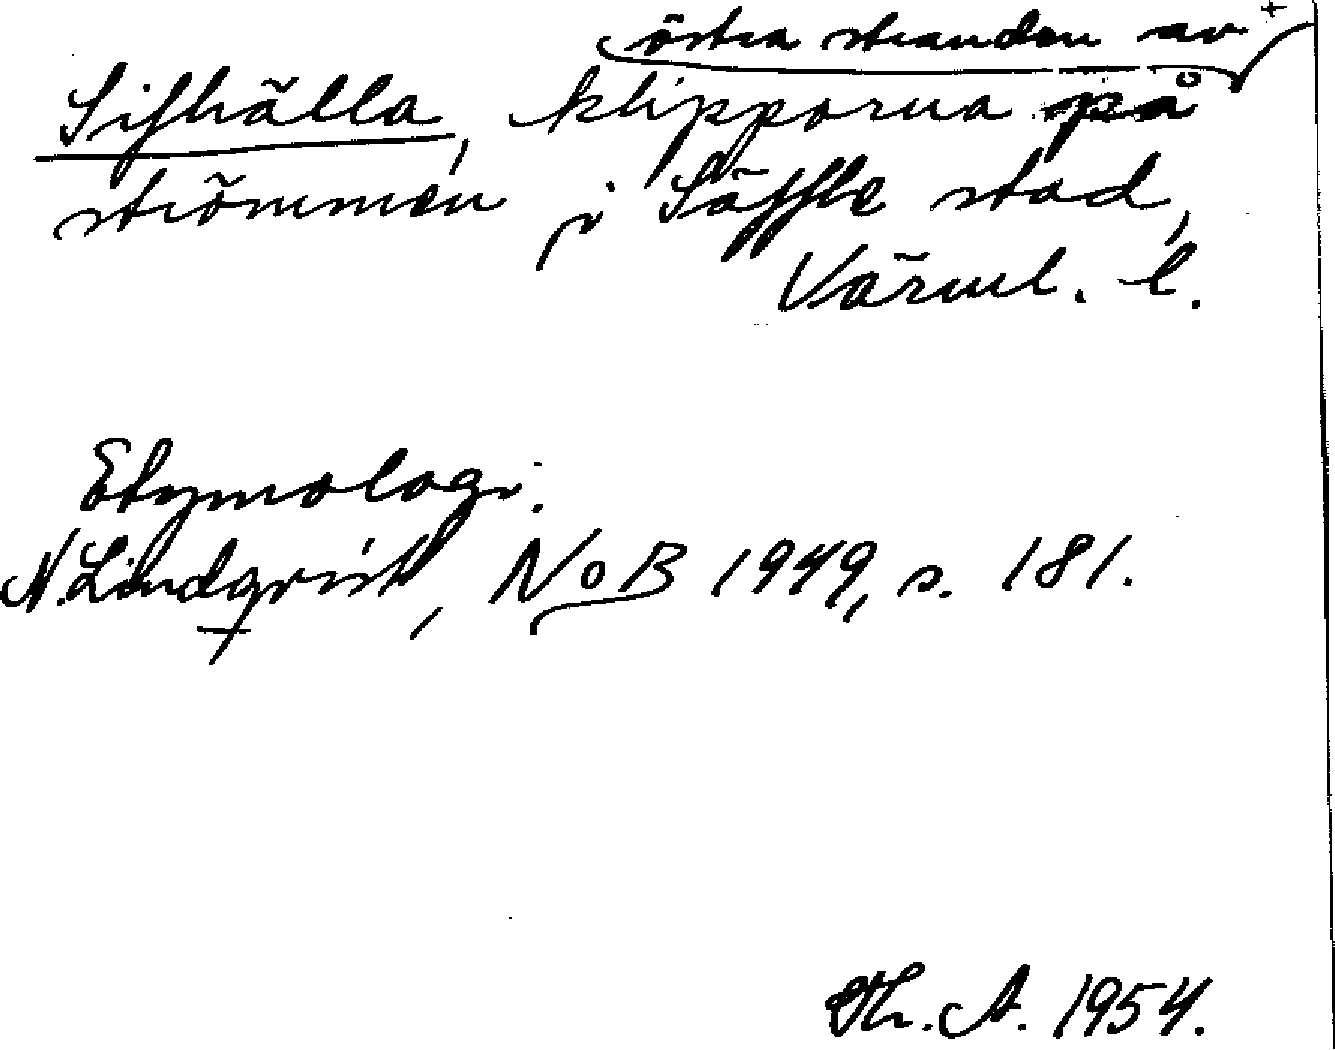 östra stranden av
Sifhälla, klipporna på
strömmen i Säffle stad,
Värml. l.
Etymologi.
N. Lindqvist, NoB 1949, s. 181.
Th. A. 1954.